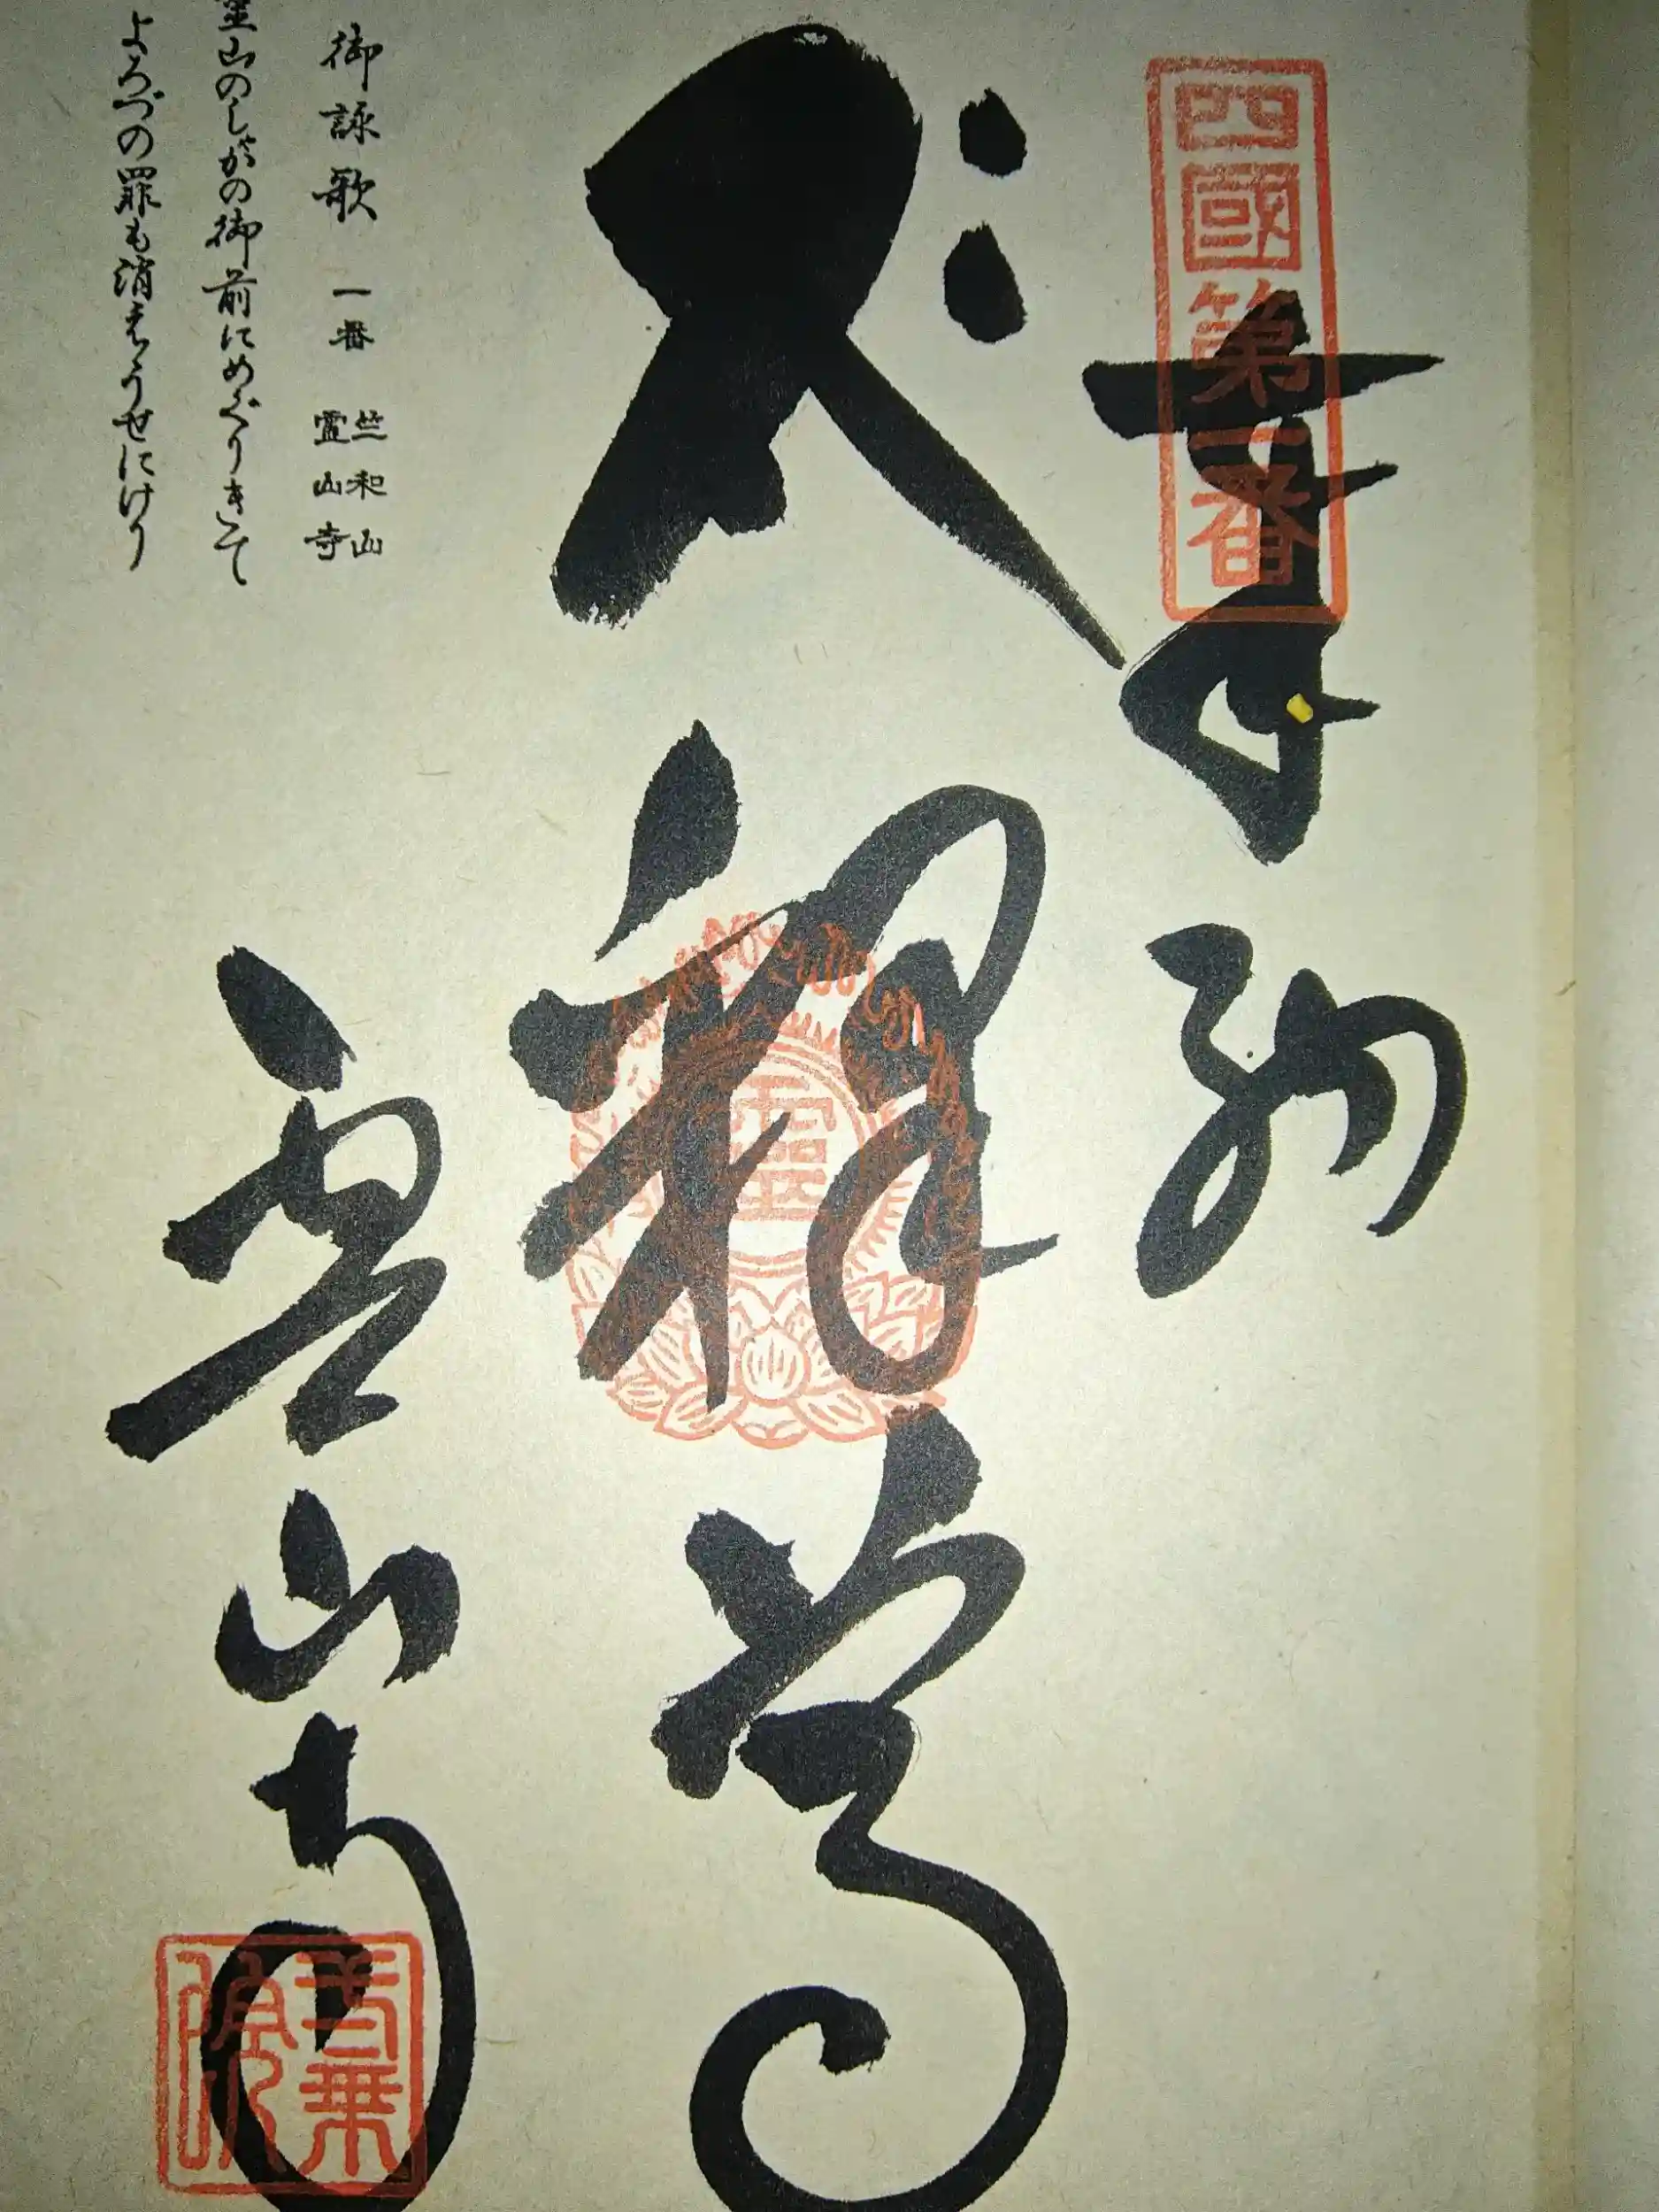 四國第一番
奉納
釋尊
霊
霊山寺
一乗院
御詠歌 一番 竺和山 霊山寺
霊山のしゃかの御前にめぐりきて
よろづの罪も消えうせにけり